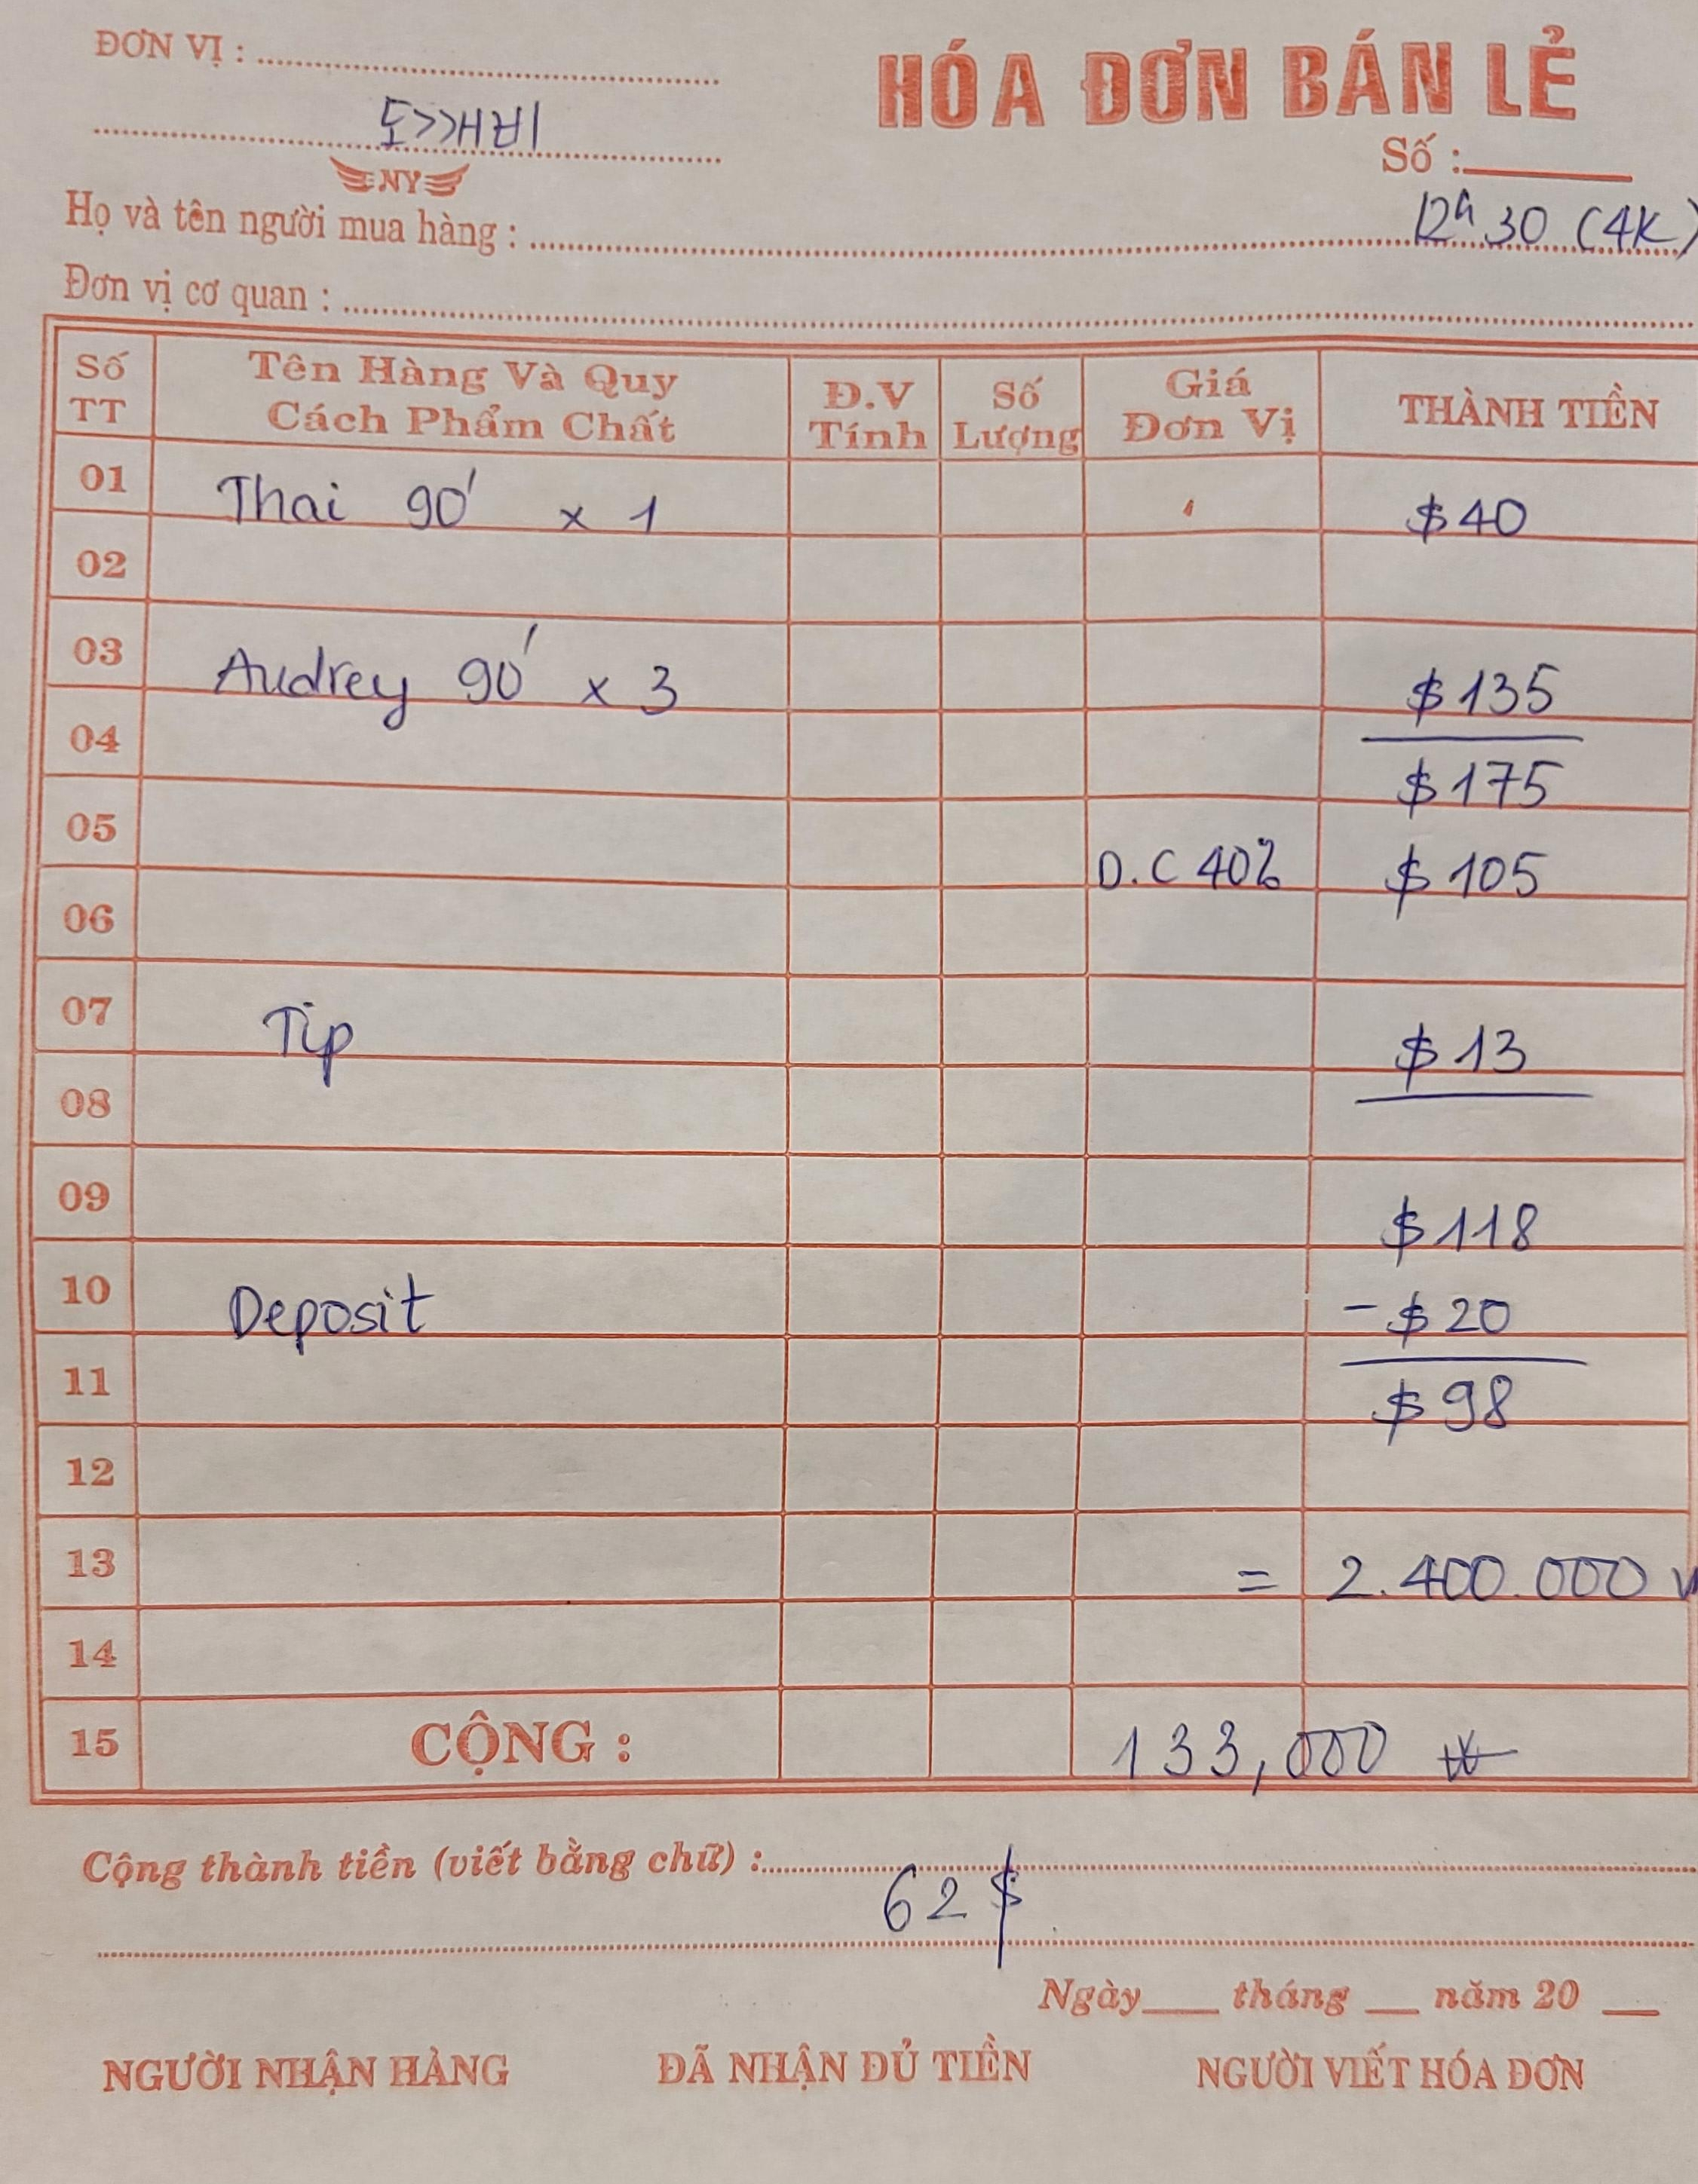 ĐƠN VỊ :
HÓA ĐƠN BÁN LẺ
도깨비
Số :
NY
Họ và tên người mua hàng : 12h 30 (4K)
Đơn vị cơ quan :
Số TT Tên Hàng Và Quy Cách Phẩm Chất Đ.V Tính Số Lượng Giá Đơn Vị THÀNH TIỀN
01 Thai 90' x 1 $40
02
03 Audrey 90' x 3 $135
04 $175
05 D.C 40% $105
06
07 Tip $13
08
09 $118
10 Deposit -$20
11 $98
12
13 = 2.400.000
14
15 CỘNG : 133,000 ₩
Cộng thành tiền (viết bằng chữ) :
62$
Ngày tháng năm 20
NGƯỜI NHẬN HÀNG ĐÃ NHẬN ĐỦ TIỀN NGƯỜI VIẾT HÓA ĐƠN